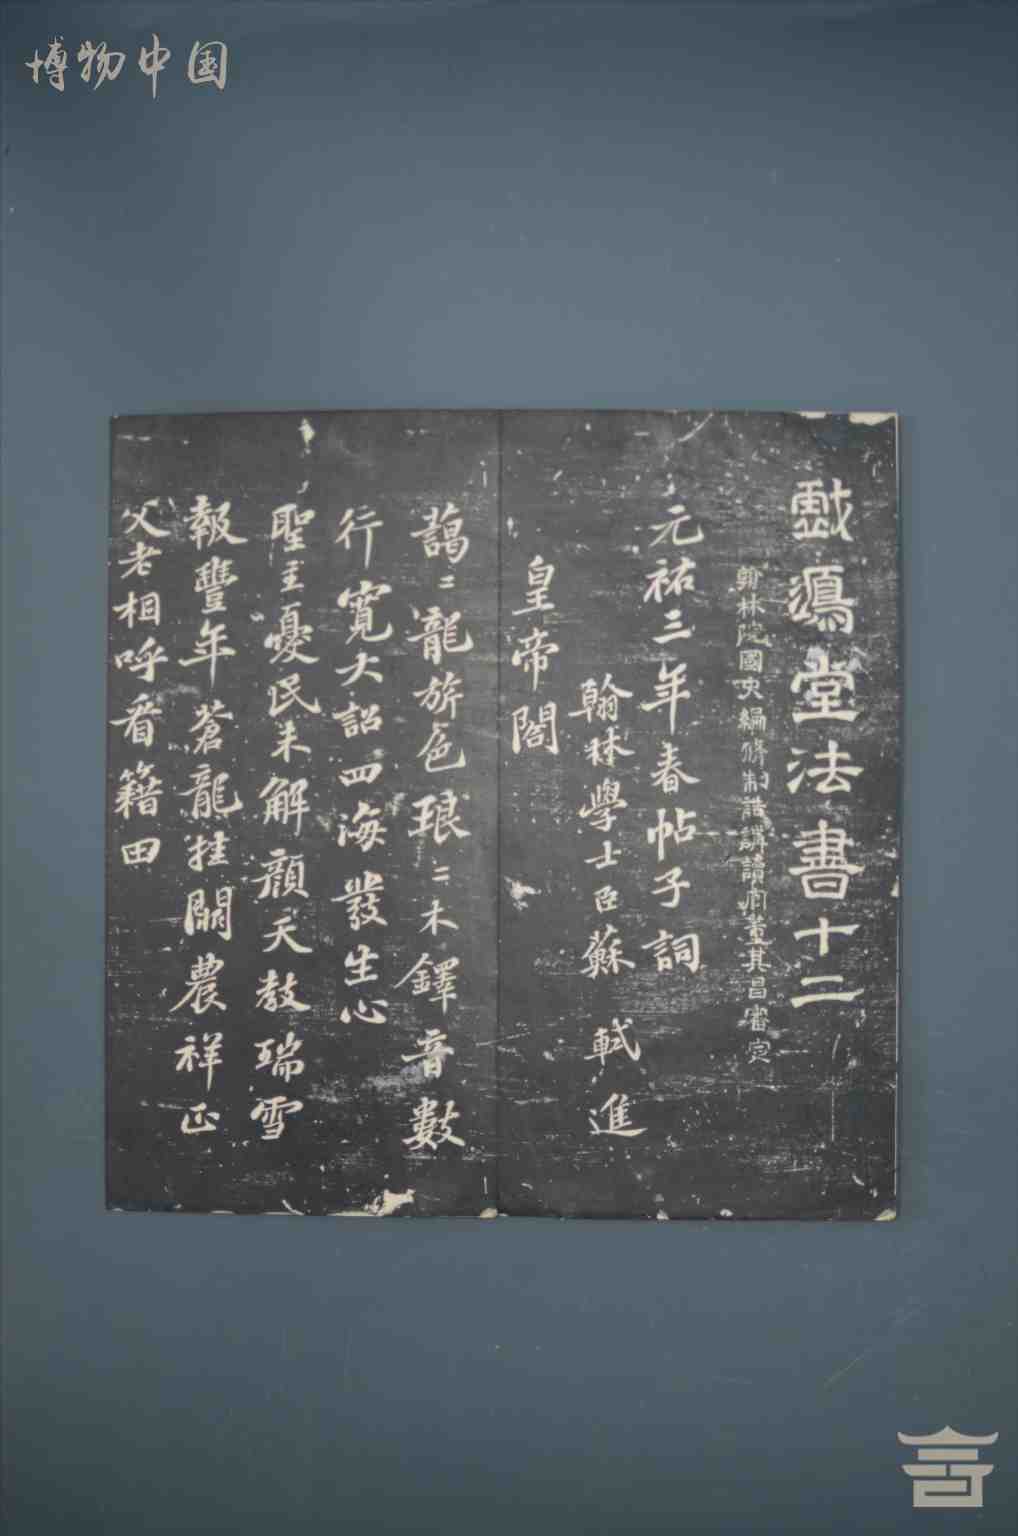 博物中国
戲鴻堂法書十二
翰林院國史編修制誥講讀官董其昌審定
元祐三年春帖子詞
翰林學士臣蘇軾進
皇帝閣
藹〻龍旂色琅〻木鐸音數
行寬大詔四海發生心
聖主憂民未解顏天教瑞雪
報豐年蒼龍挂闕農祥正
父老相呼看籍田